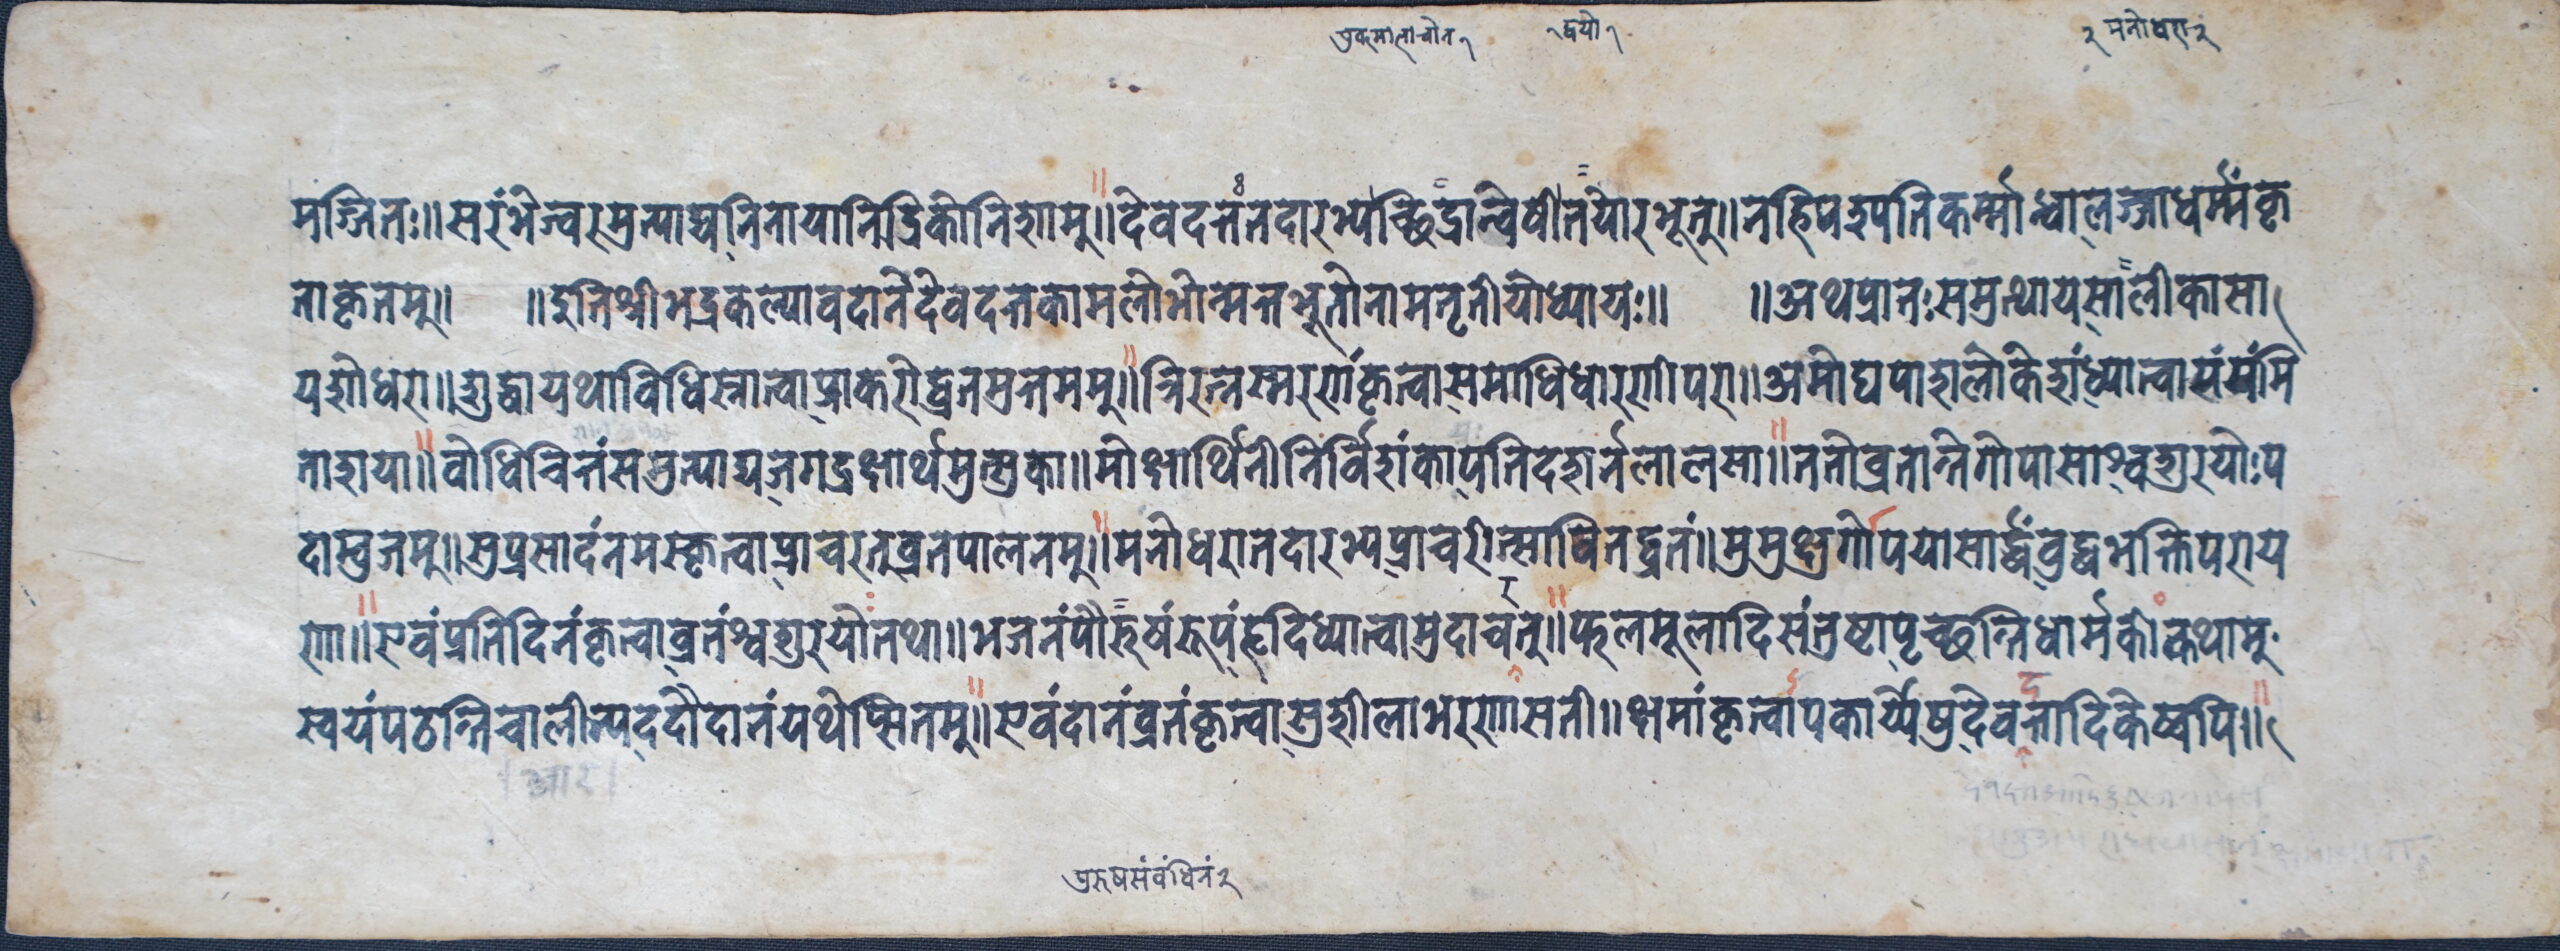 मज्जितः॥ सरंभेज्वरमुत्पाद्य् निनायानिद्रिकोनिशाम्॥ देवदत्तंतदारभ्य च्छिद्रान्वेषीतयोरभूत्॥ नहिपश्पतिकर्म्मान्धोलज्जाधर्म्मंकृ
ताकृतम्॥ ॥इतिश्रीभद्रकल्पावदानेदेवदत्तकामलोभोन्मत्तभूतोनामतृतीयोध्यायः॥ ॥अथप्रातःसमुत्थाय सालीकासा
यशोधरा॥ शुद्धायथाविधिस्नात्वा प्राकरोद्व्रतमुत्तमम्॥ त्रिरत्नस्मरणंकृत्वा समाधिधारणीपरा॥ अमोघपाशलोकेशंध्यात्वासंयमि
ताशया॥ बोधिचित्तंसमुत्पाद्य जगद्रक्षार्थमुत्सुका॥ मोक्षार्थिनीनिर्विशंका पतिदर्शनलालसा॥ ततोव्रतान्तेगोपासा श्वशुरयोःप
दाम्बुजम्॥ सुप्रसादंनमस्कृत्वा प्राचरत् व्रतपालनम्॥ मनोधरातदारभ्य प्राचरीत्साधितद्व्रतं॥ मुमुक्षुर्गोपयासार्द्धं बुद्धभक्तिपराय
णा॥ एवंप्रतिदिनंकृत्वा व्रतंश्वशुरयोतथा॥ भजनंपौरुषंरूपंहृदिध्यात्वामुदाचरत्॥ फलमूलादिसंतुष्टा पृच्छन्तिधार्मकोत्कथाम्
स्वयंपठन्तिचालीन्य ददौदानंयथेप्सितम्॥ एवंदानंव्रतंकृत्वा सुशीलाभरणासती॥ क्षमांकृत्वापकार्य्येषु देवत्तादिकेष्वपि॥
पुरुषसंबंधिनं२